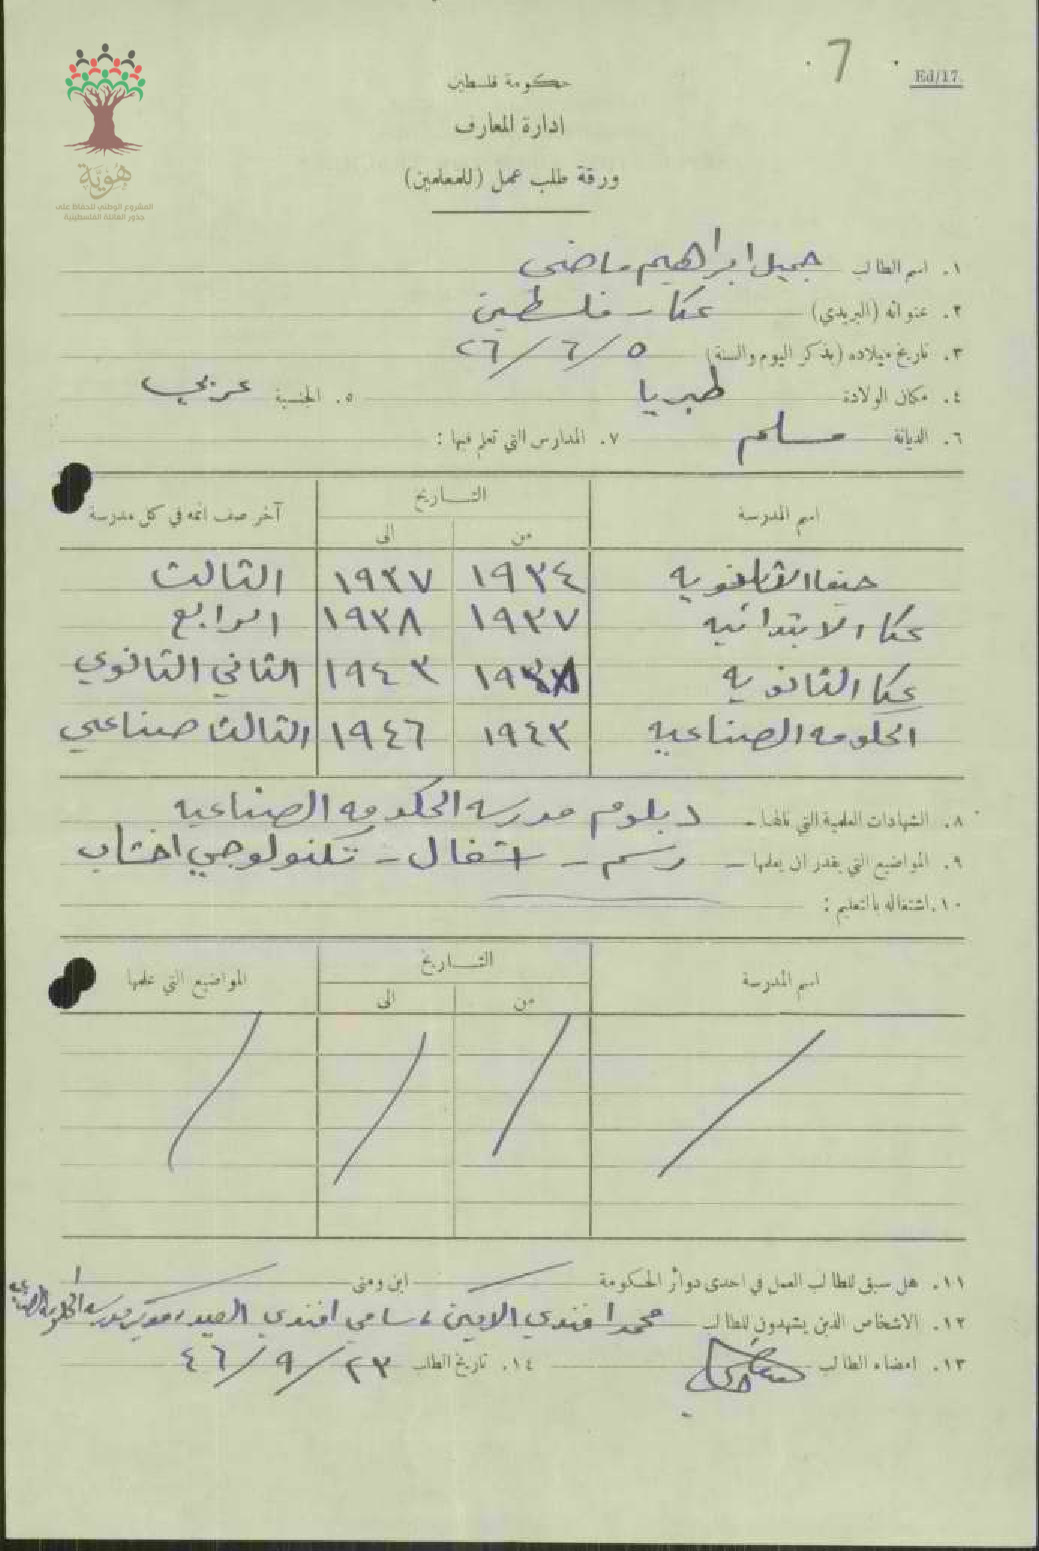 7
Ed/17.
حكومة فلسطين
ادارة المعارف
ورقة طلب عمل (للمعلمين)
هُوِيَّة
المشروع الوطني للحفاظ على
جذور العائلة الفلسطينية
١. اسم الطالب جميل ابراهيم ماضي
٢. عنوانه (البريدي) عكا - فلسطين
٣. تاريخ ميلاده (بذكر اليوم والسنة) ٥/٦/٢٦
٤. مكان الولادة طبريا ٥. الجنسية عربي
٦. الديانة مسلم ٧. المدارس التي تعلم فيها :
اسم المدرسة التاريخ آخر صف اتمه في كل مدرسة
من الى
حيفا الثانويه ١٩٣٤ ١٩٣٧ الثالث
عكا الابتدائيه ١٩٣٧ ١٩٣٨ الرابع
عكا الثانويه ١٩٣٨ ١٩٤٣ الثاني الثانوي
الحكومه الصناعيه ١٩٤٣ ١٩٤٦ الثالث صناعي
٨. الشهادات العلمية التي نالها - دبلوم مدرسه الحكومه الصناعيه
٩. المواضيع التي يقدر ان يعلمها - رسم - اشغال - تكنولوجي اخشاب
١٠. اشتغاله بالتعليم :
اسم المدرسة التاريخ المواضيع التي علمها
من الى
١١. هل سبق للطالب العمل في احدى دوائر الحكومة اين ومتى
١٢. الاشخاص الذين يشهدون للطالب محمد افندي الامين، سامي افندي العيد، مدير مدرسه الحكومه الصناعيه
١٣. امضاء الطالب ماضي ١٤. تاريخ الطلب ٢٣/٩/٤٦